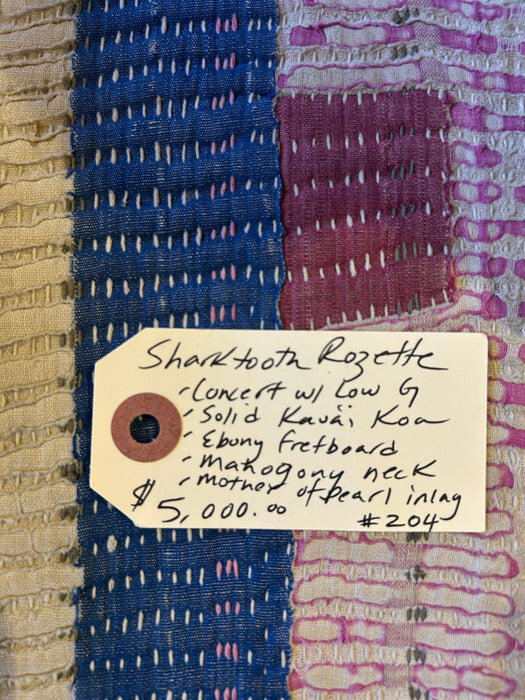 Sharktooth Rozette
- Concert w/ Low G
- Solid Kauai Koa
- Ebony Fretboard
- Mahogony neck
- Mother of Pearl inlay
$5,000.00
#204